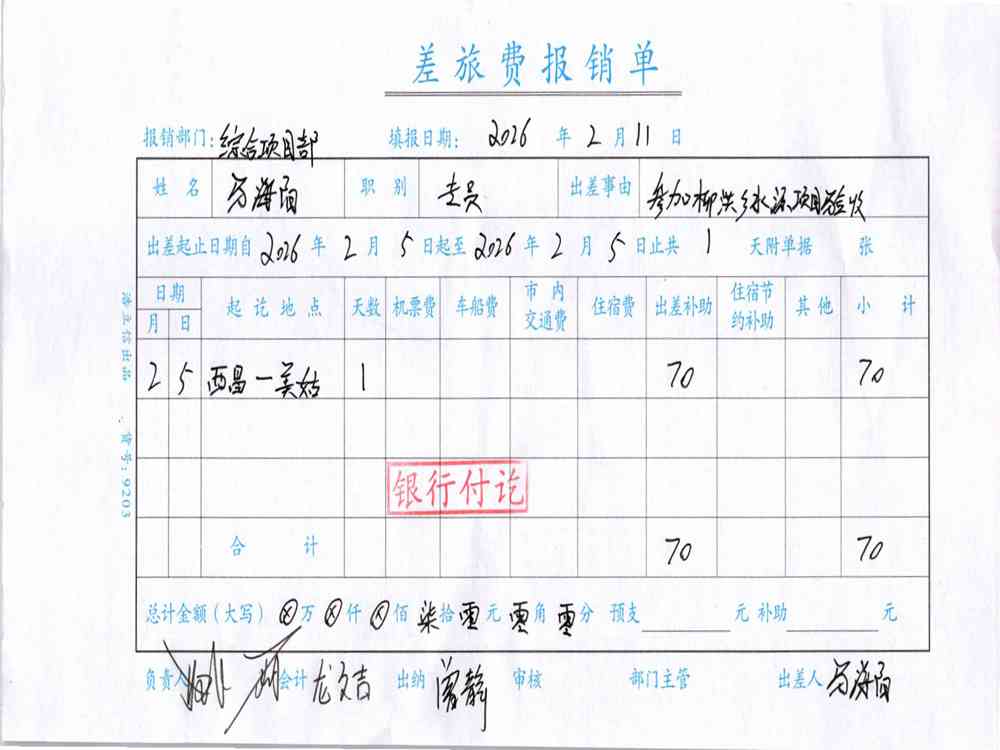 差旅费报销单
报销部门：综合项目部 填报日期： 2026 年 2 月 11 日
姓名 马海阳 职别 专员 出差事由 参加柳洪乡水源项目验收
出差起止日期自 2026 年 2 月 5 日起至 2026 年 2 月 5 日止共 1 天附单据 张
日期 起讫地点 天数 机票费 车船费 市内交通费 住宿费 出差补助 住宿节约补助 其他 小计
月 日
2 5 西昌一美姑 1 70 70
银行付讫
合计 70 70
总计金额（大写） ⊗万 ⊗仟 ⊗佰 柒拾 零元 零角 零分 预支 元 补助 元
负责人 会计 龙文吉 出纳 曾静 审核 部门主管 出差人 马海阳
货号：9203